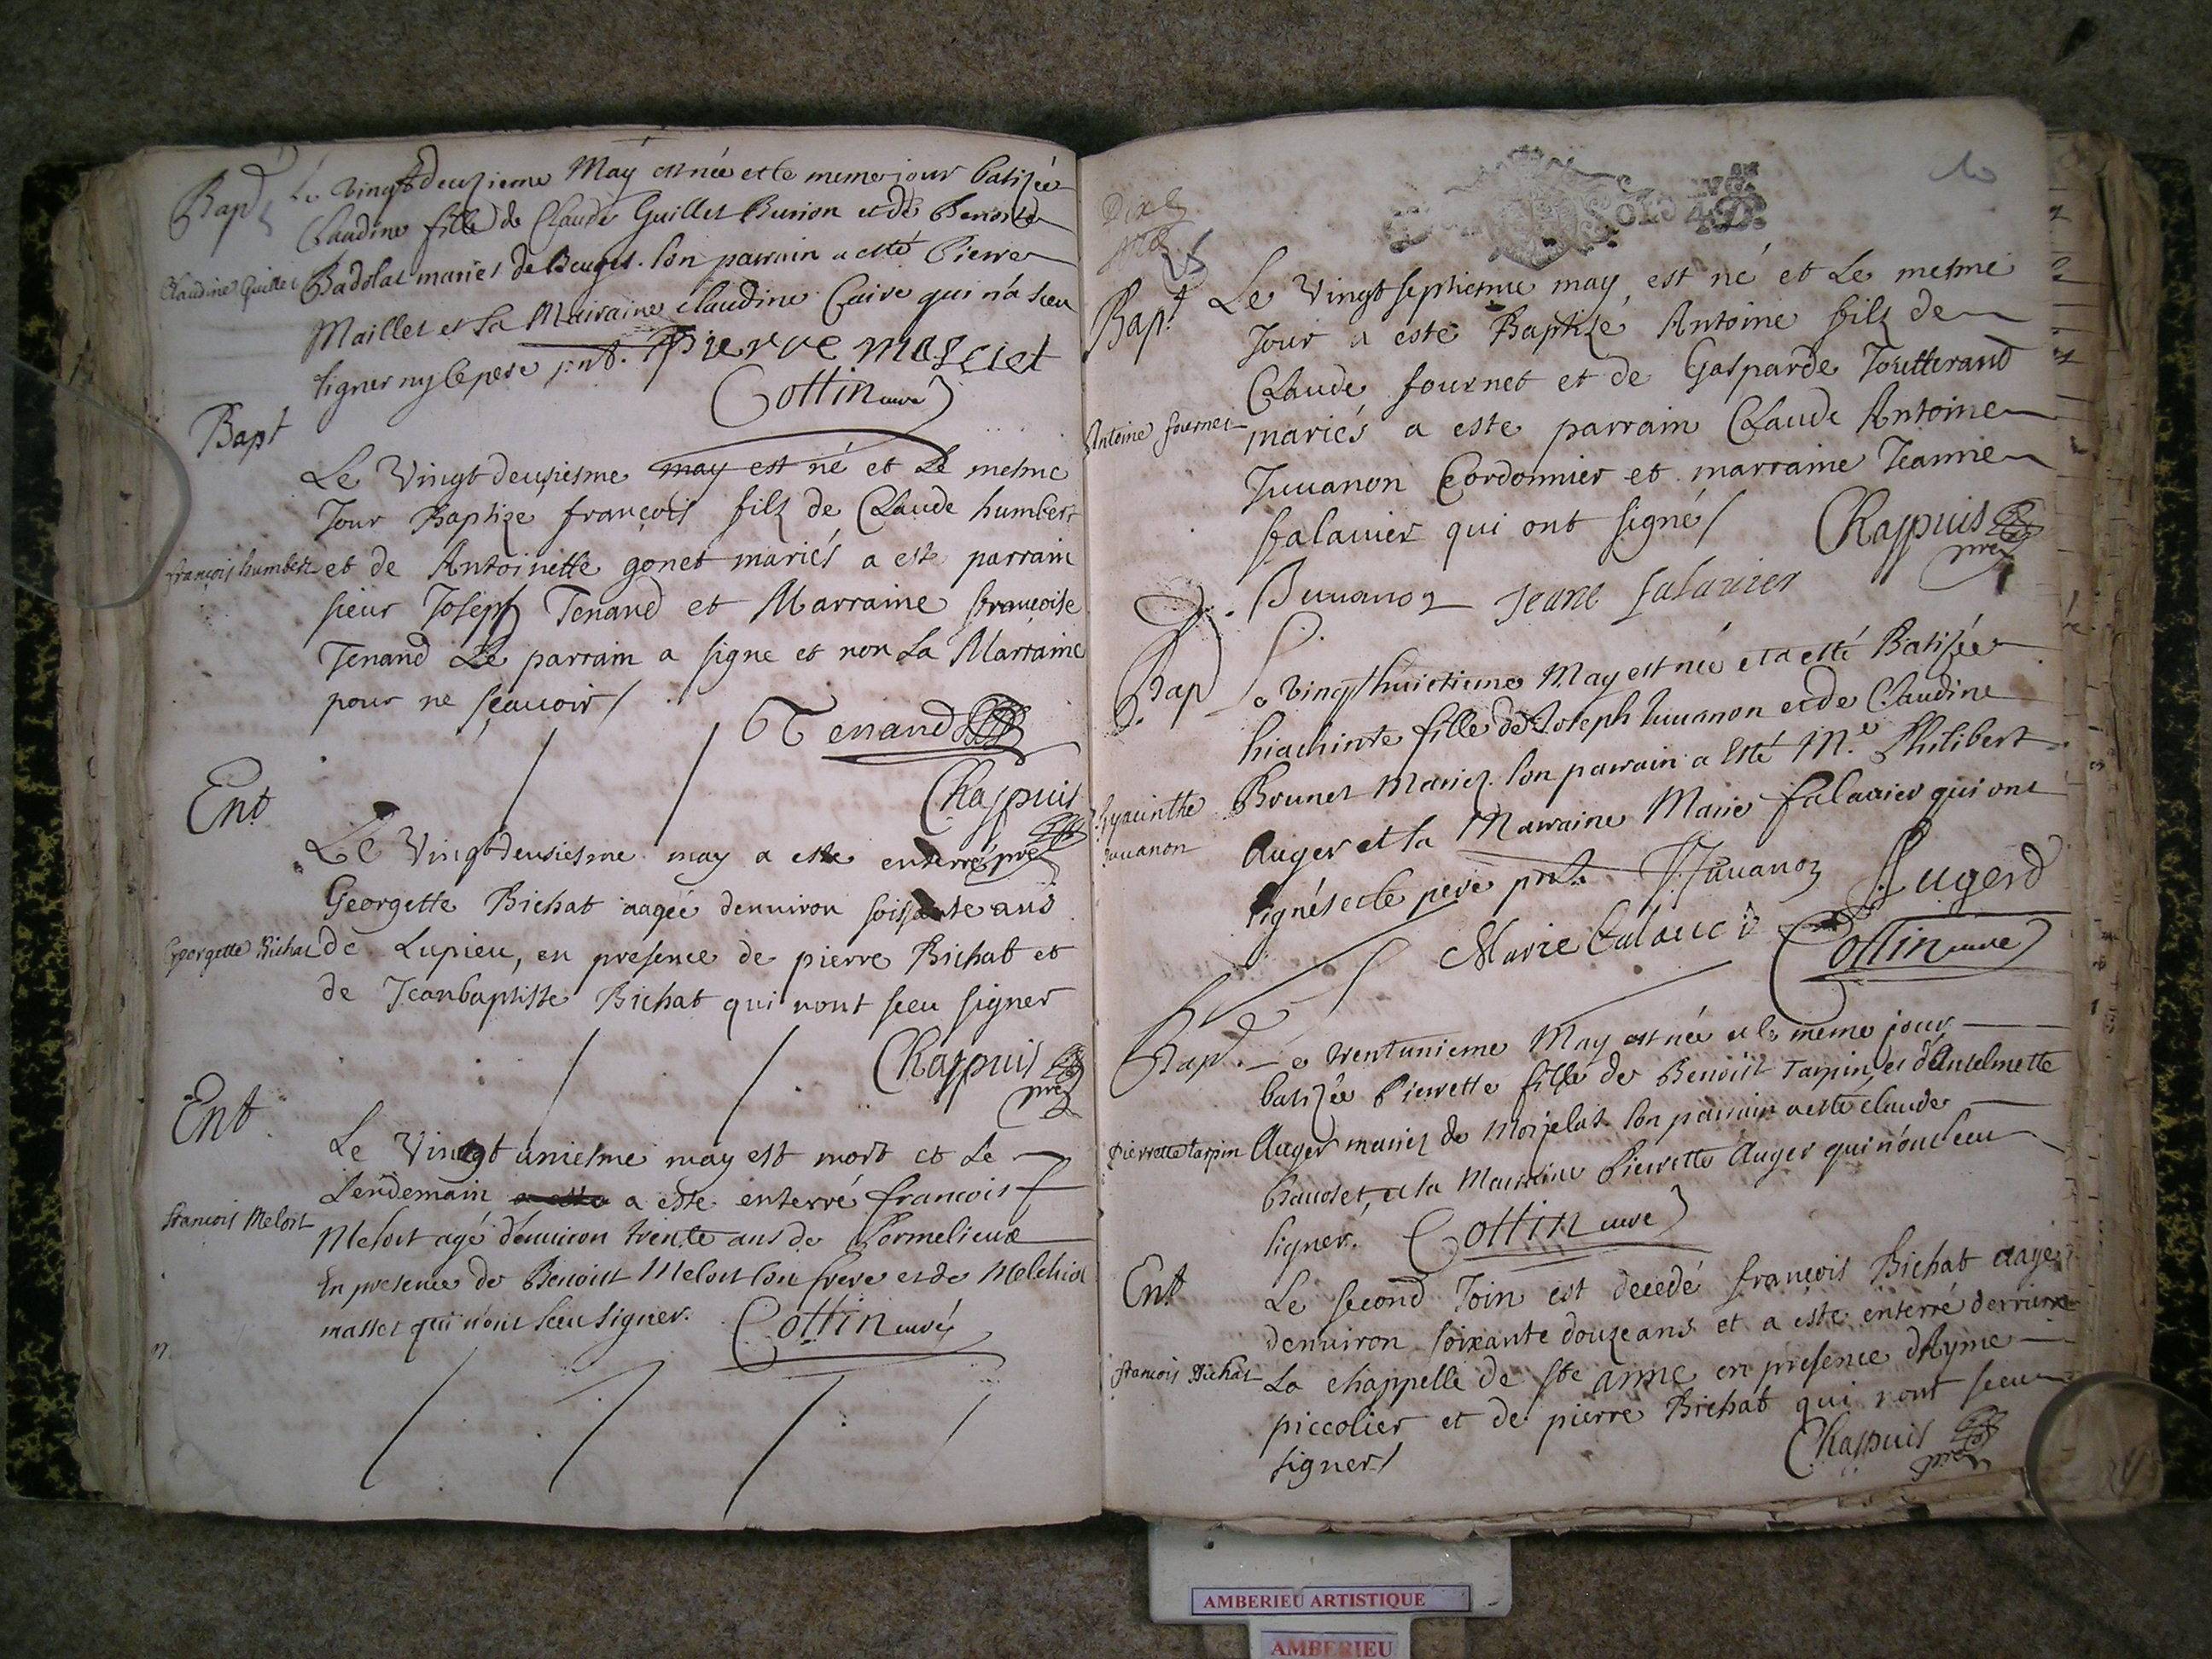 Bapt
Le vingt deuzieme May est née et le meme jour batizée
Claudine fille de Claude Guillet Burion et de Benoite
Claudine Guillet
Badolat mariés de Beuges. Son parrain a esté Pierre
Maillet et sa Mairaine Claudine Caire qui n'a sceu
signer ny le pere pnt. Pierre masciet
Cottin curé
Bapt
Le Vingt deuxiesme may est né et Le mesme
Jour Baptize françois filz de Claude humbert
françois humbert
et de Antoinette gonet mariés a este parrain
sieur Joseph Tenand et Marraine françoise
Tenand Le parrain a signe et non La Marraine
pour ne sçauoir /
Tenand
Chappuis
pre
Ent
Le Vingt deusiesme may a este enterré
Georgette Bichat aagée denuiron soissante ans
Georgette Bichat
de Lupieu, en presence de pierre Bichat et
de Jeanbaptiste Bichat qui nont sceu signer
Chappuis
pre
Ent
Le Vingt uniesme may est mort et Le
Lendemain a esté enterré francois
francois Meloit
Meloit agé d'enuiron trente ans de Cormelieux
En presence de Benoist Meloit son frere et de Melchior
masset qui n'ont sceu signer. Cottin curé
Bapt
Le Vingt septiesme may est né et Le mesme
Jour a esté Baptizé Antoine filz de
Claude fournet et de Gasparde Toutterand
Antoine fournet
mariés a este parrain Claude Antoine
Juuanon Cordonnier et marraine Jeanne
falauier qui ont signé /
Chappuis
pre
Juuanon Jeane falauier
Bap
Le vingt huictieme May est née et a esté Batisée
hiachinte fille de Joseph Juuanon et de Claudine
hyacinthe
Juuanon
Brunet Mariez. Son parrain a Esté M.e Philibert
Auger et sa Marraine Marie falauier qui ont
signés et le pere pnt. Juuanon Augerd
Marie Cottin curé
Bap
Le trentunieme May est née et le meme jour
batizée Pierrette fille de Benoist Tarpin et d'Anselmette
Pierrette tarpin
Auger mariez de Morjelas son parrain a esté claude
et sa Marraine Pierrette Auger qui n'ont sceu
signer. Cottin curé
Ent
Le second Join est decedé françois Bichat aagé
denuiron soixante douze ans et a este enterré derriere
francois Bichat
La chappelle de ste anne en presence dAyme
piccolier et de pierre Bichat qui nont sceu
signer /
Chappuis
pre
AMBERIEU ARTISTIQUE
AMBERIEU